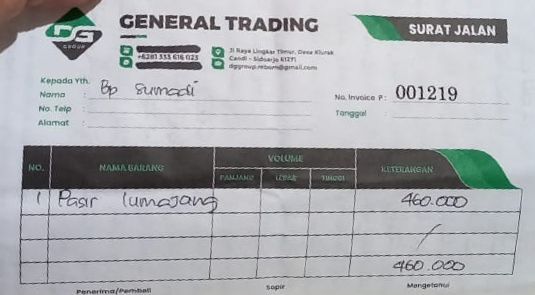 GENERAL TRADING
SURAT JALAN
DG
GROUP
+6281 333 616 023
Jl Raya Lingkar Timur, Desa Klurak
Candi - Sidoarjo 61271
dggroup.reborn@gmail.com
Kepada Yth.
Nama : Bp Sumadi
No. Telp :
Alamat :
No. Invoice P : 001219
Tanggal :
NO. NAMA BARANG VOLUME KETERANGAN
PANJANG LEBAR TINGGI
1 Pasir lumajang 460.000
460.000
Penerima/Pembeli Sopir Mengetahui